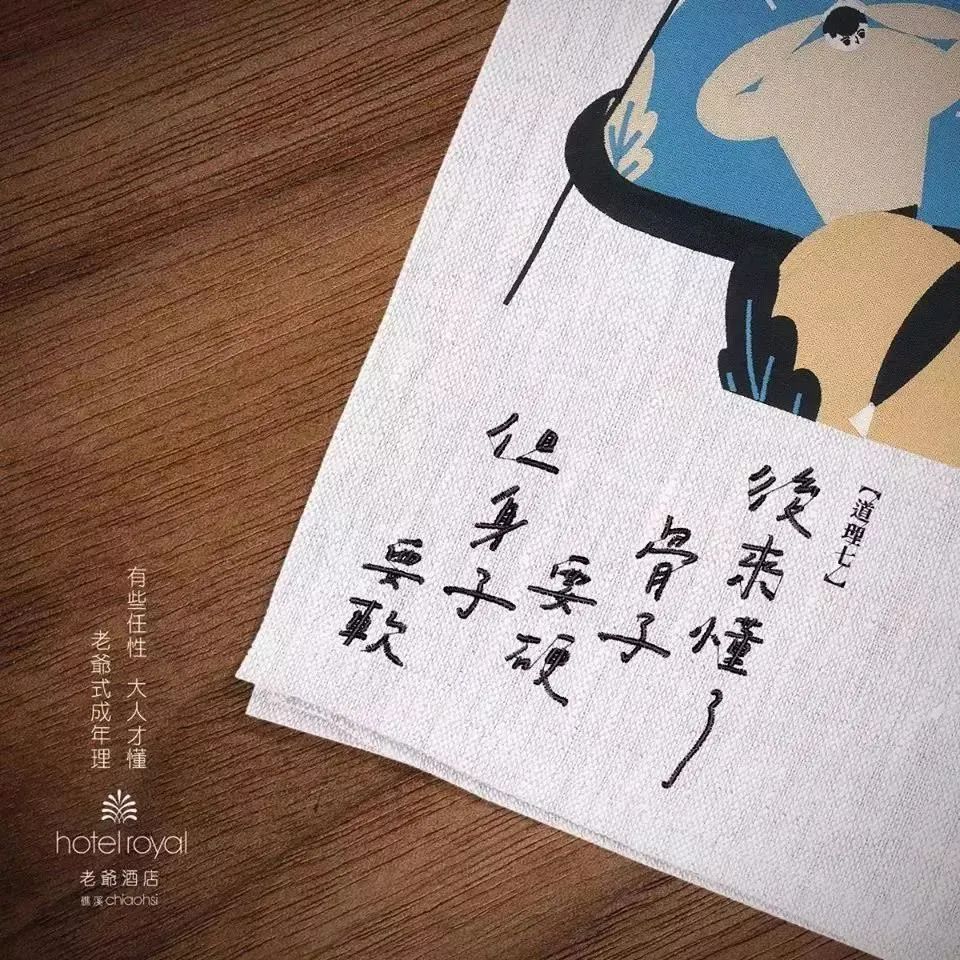 【道理七】
後來懂了
骨子要硬
但身子要軟
有些任性 大人才懂
老爺式成年理
hotel royal
老爺酒店
礁溪 chiaohsi